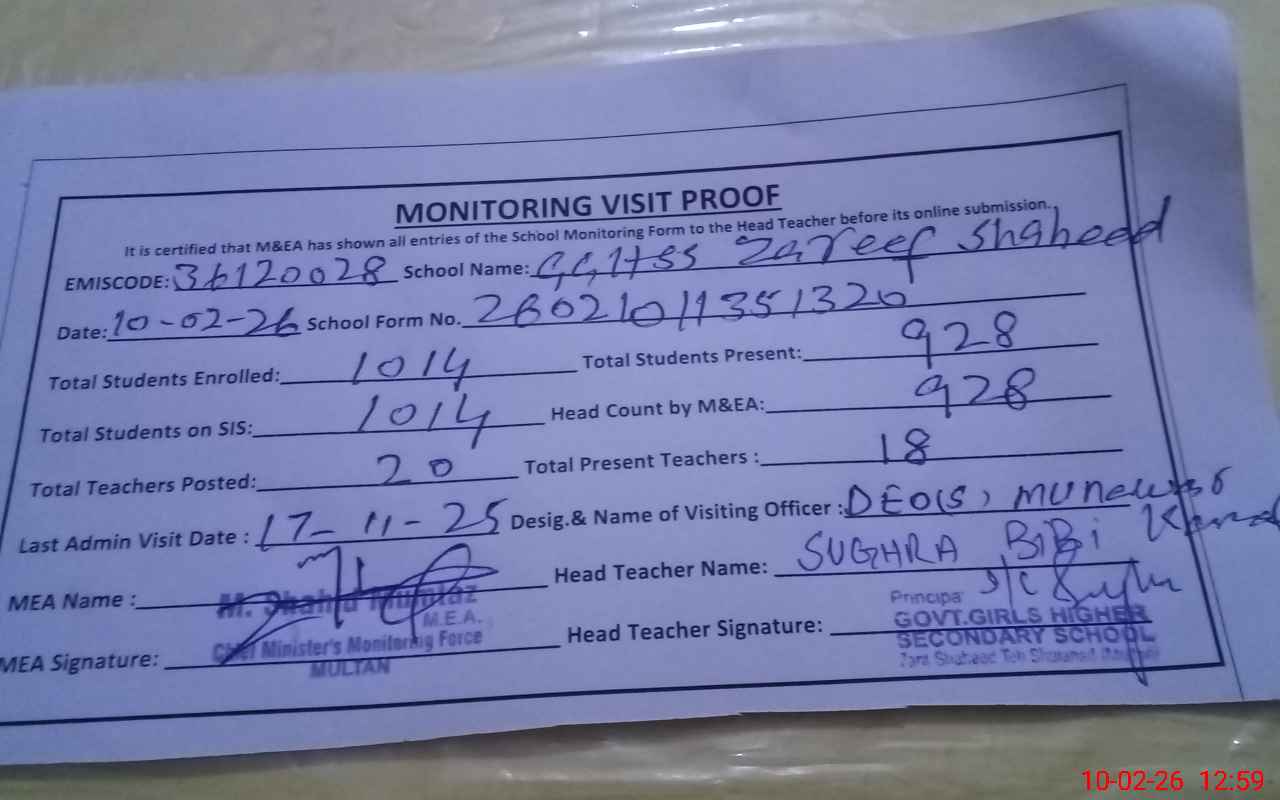 MONITORING VISIT PROOF
It is certified that M&EA has shown all entries of the School Monitoring Form to the Head Teacher before its online submission.
EMISCODE: 36120028 School Name: GGHSS Zareef Shaheed
Date: 10-02-26 School Form No. 26021011351320
Total Students Enrolled: 1014 Total Students Present: 928
Total Students on SIS: 1014 Head Count by M&EA: 928
Total Teachers Posted: 20 Total Present Teachers : 18
Last Admin Visit Date : 17-11-25 Desig.& Name of Visiting Officer : DEO(S),
MEA Name : M. Shahid Mumtaz Head Teacher Name: SUGHRA BiBi
M.E.A.
MEA Signature: Chief Minister's Monitoring Force
MULTAN
Head Teacher Signature: Principal
GOVT.GIRLS HIGHER
SECONDARY SCHOOL
10-02-26 12:59